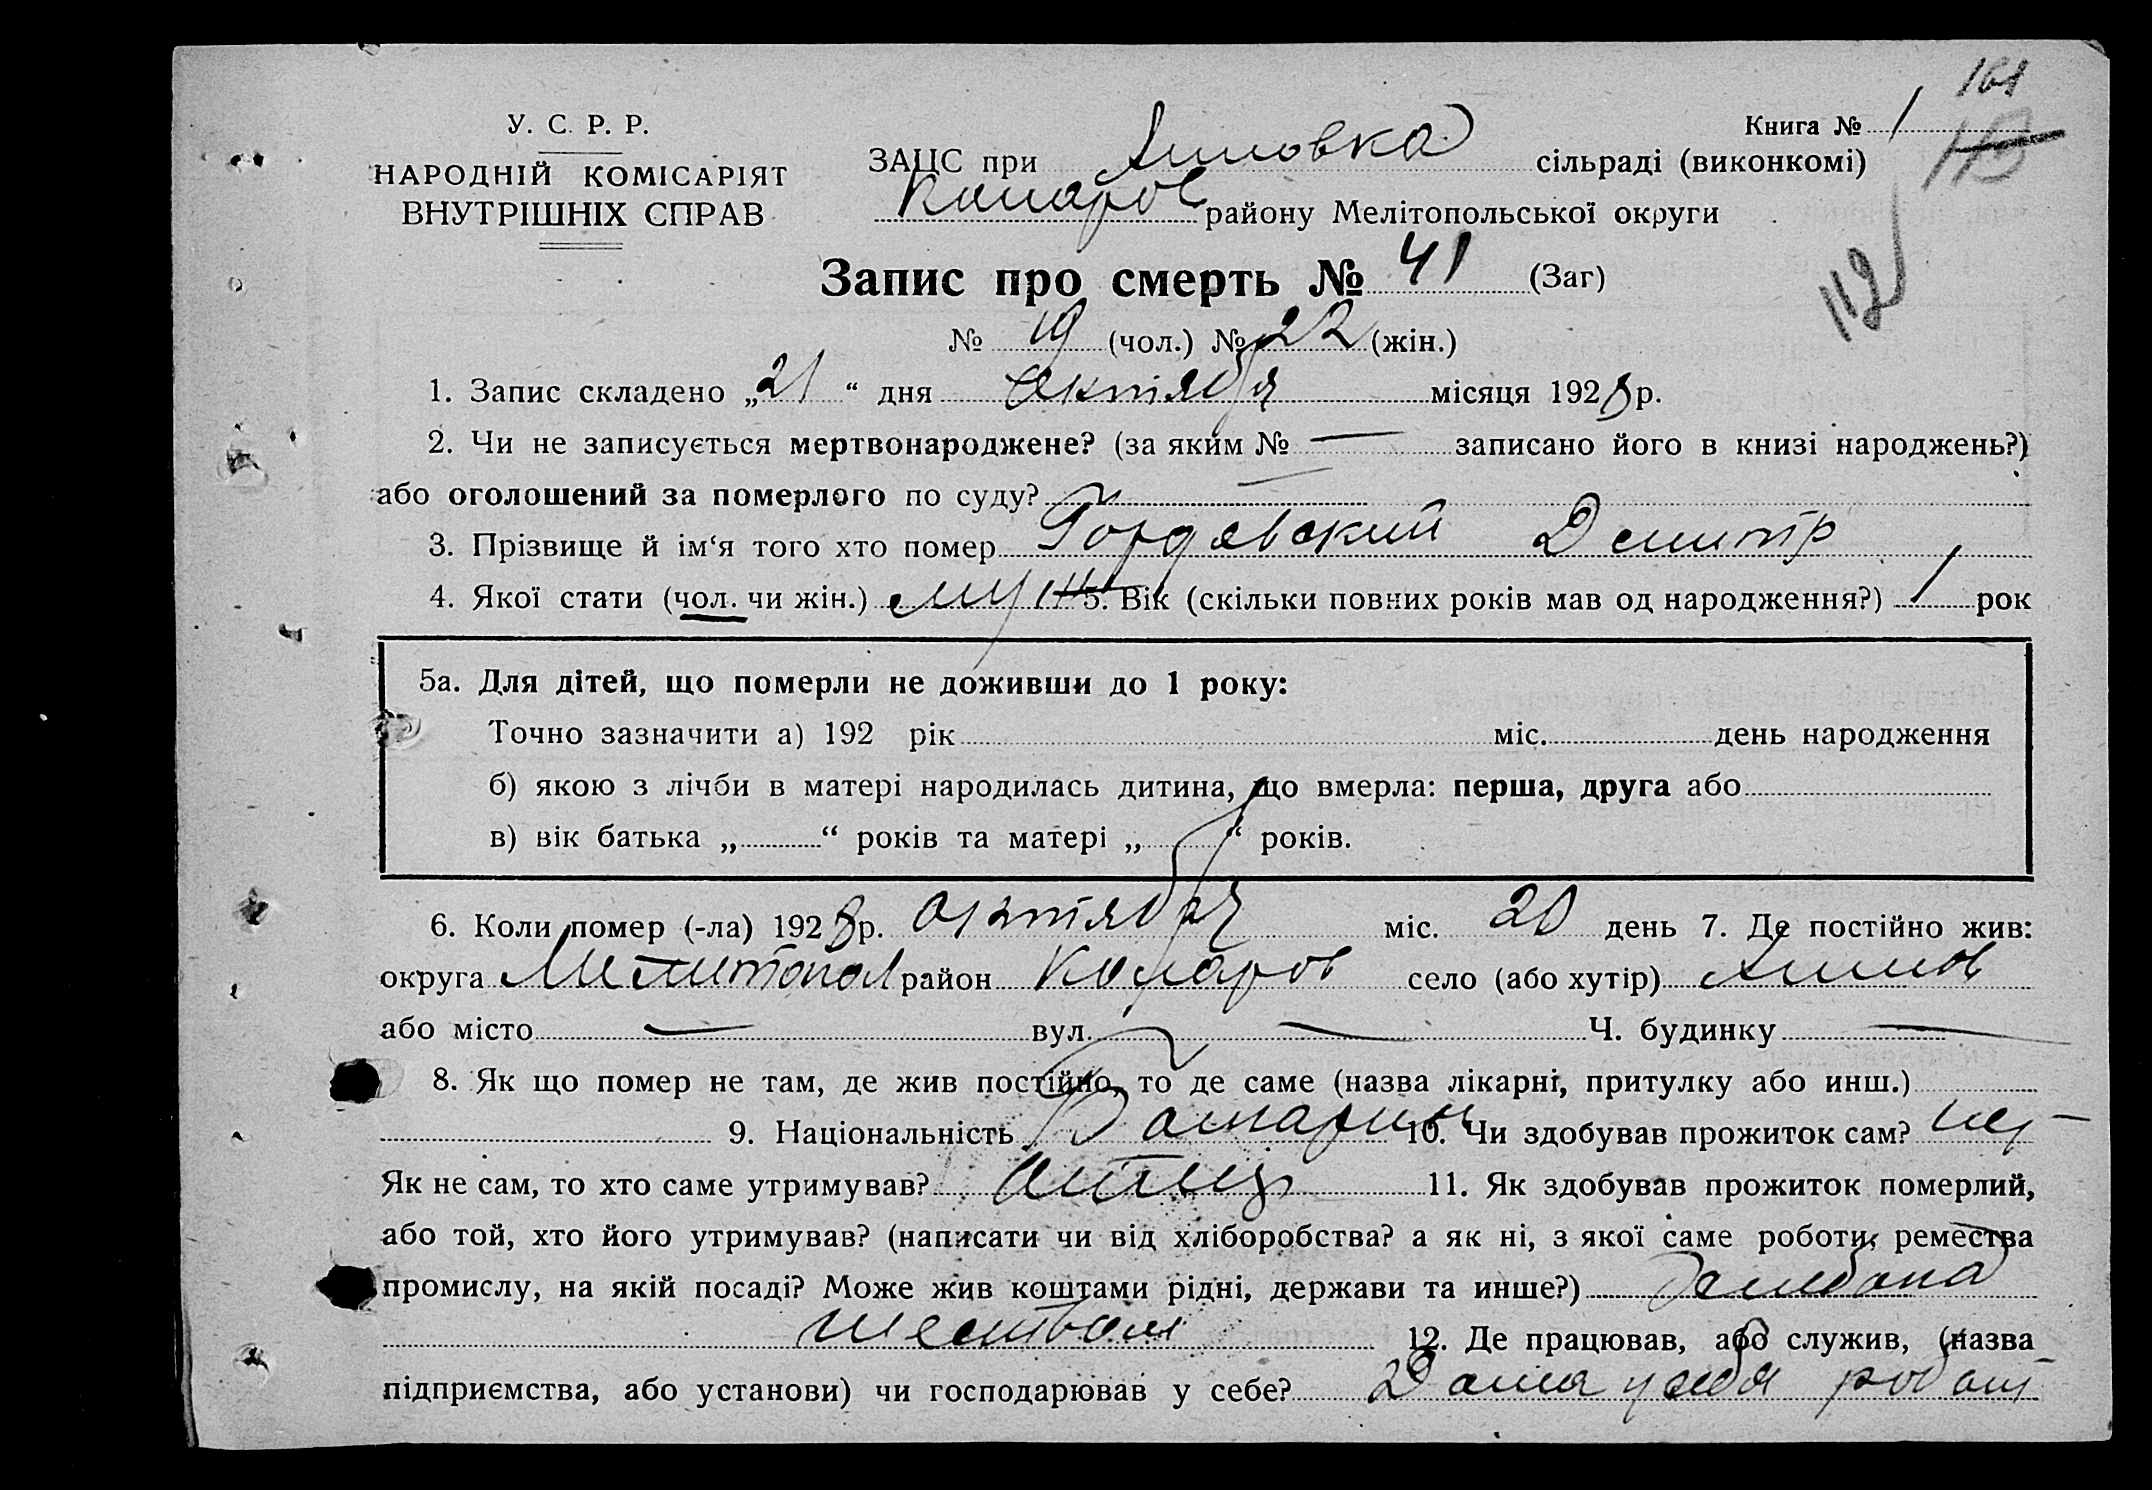 161
У. С. Р. Р.
НАРОДНІЙ КОМІСАРІЯТ
ВНУТРІШНІХ СПРАВ
Книга № 1
113
ЗАЦС при сільраді (виконкомі)
району Мелітопольської округи
112
Запис про смерть № 41 (Заг)
№ 19 (чол.) № 22 (жін.)
1. Запис складено „21“ дня Октября місяця 1928 р.
2. Чи не записується мертвонароджене? (за яким № — записано його в книзі народжень?)
або оголошений за померлого по суду?
3. Прізвище й ім‘я того хто помер Дмитр
4. Якої стати (чол. чи жін.) муж 5. Вік (скільки повних років мав од народження?) 1 рок
5а. Для дітей, що померли не доживши до 1 року:
Точно зазначити а) 192 рік міс. день народження
б) якою з лічби в матері народилась дитина, що вмерла: перша, друга або
в) вік батька „ “ років та матері „ “ років.
6. Коли помер (-ла) 1928 р. Октября міс. 20 день 7. Де постійно жив:
округа Мелитопол район село (або хутір)
або місто — вул. — Ч. будинку —
8. Як що помер не там, де жив постійно, то де саме (назва лікарні, притулку або инш.)
9. Національність 10. Чи здобував прожиток сам? нет
Як не сам, то хто саме утримував? 11. Як здобував прожиток померлий,
або той, хто його утримував? (написати чи від хліборобства? а як ні, з якої саме роботи, ремества
промислу, на якій посаді? Може жив коштами рідні, держави та инше?)
12. Де працював, або служив, (назва
підприємства, або установи) чи господарював у себе? Дома у себя